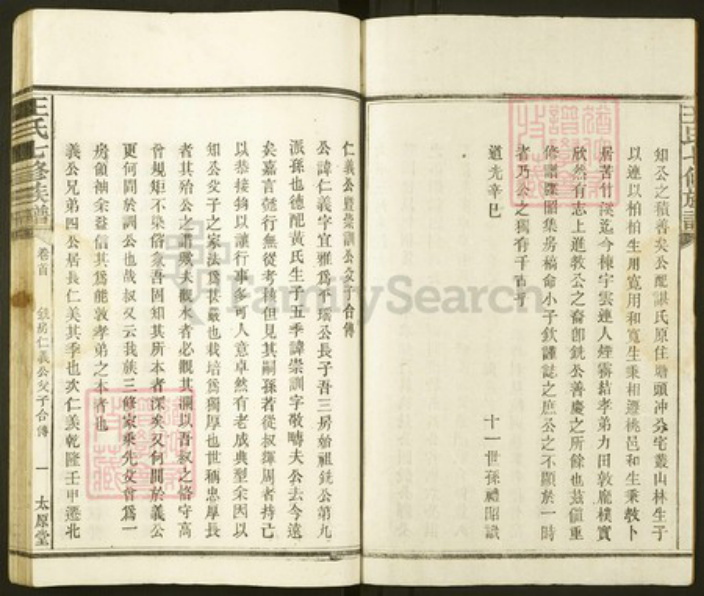 知公之積善矣公配諶氏原住塘頭冲分宅叢山林生子
以連以柏柏生用寬用和寬生秉相遷桃邑和生秉教卜
居苦竹溪迄今棟宇雲連人煙霧結孝弟力田敦龐樸實
欣然有志上進教公之裔卽銑公善慶之所餘也茲值重
修譜牒囑集房稿命小子欽謹誌之庶公之不顯於一時
者乃公之獨有千古乎
道光辛巳
十一世孫禮昭識
王氏七修族譜
卷首
仁義公父子合傳
一
太原堂
仁義公暨崇訓公父子合傳
公諱仁義字宜雅爲不瑤公長子吾三房始祖銑公第九
派孫也德配黃氏生子五季諱崇訓字敬疇夫公去今遠
矣嘉言懿行無從考核但見其嗣孫若從叔輝周者持己
以恭接物以謙行事多可人意卓然有老成典型余因以
知公父子之家法爲甚嚴也栽培爲獨厚也世稱忠厚長
者其殆公之謂歟夫觀水者必觀其瀾以吾叔之恪守高
曾規矩不染俗氛吾固知其所本者深矣又何間於義公
更何間於訓公也哉叔又云我族三修家乘先父曾爲一
房領袖余益信其爲能敦孝弟之本者也
義公兄弟四公居長仁美其季也次仁羨乾隆壬申遷北